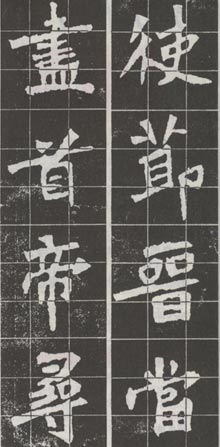 使節晉當
盡首帝尋